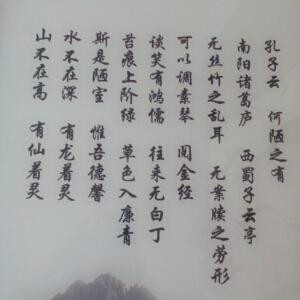 山不在高 有仙着灵
水不在深 有龙着灵
斯是陋室 惟吾德馨
苔痕上阶绿 草色入廉青
谈笑有鸿儒 往来无白丁
可以调素琴 阅金经
无丝竹之乱耳 无案牍之劳形
南阳诸葛庐 西蜀子云亭
孔子云 何陋之有